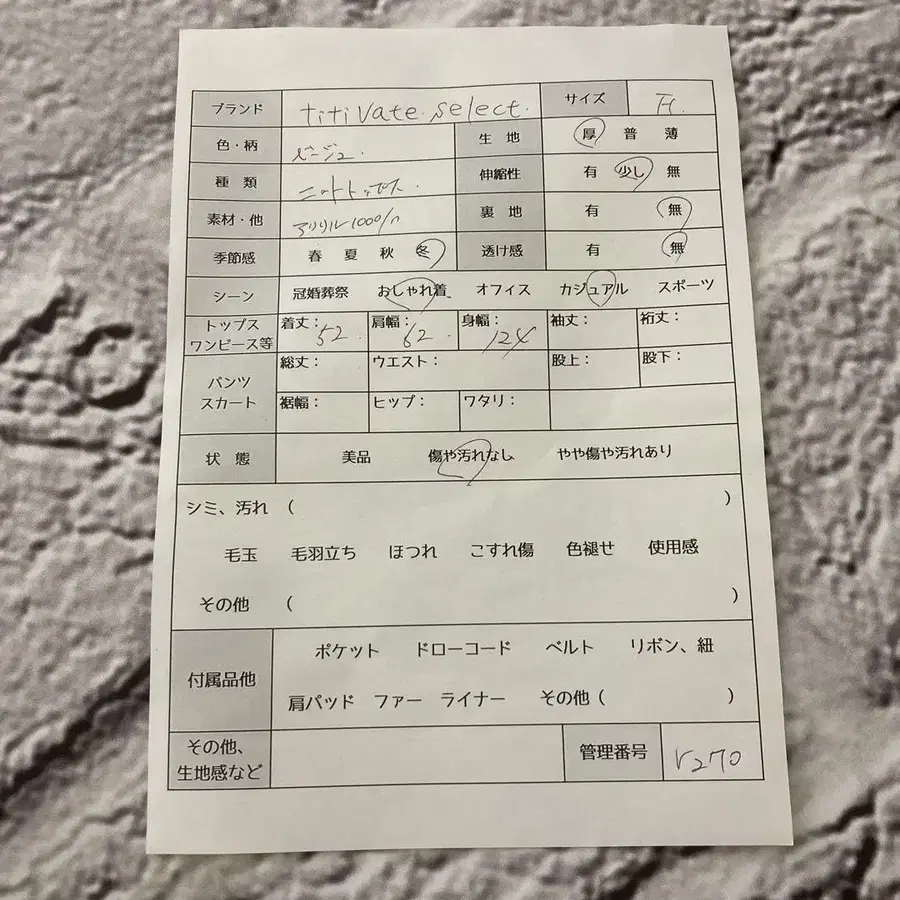 ブランド titivate.select. サイズ F.
色・柄 ベージュ. 生地 厚 普 薄
種類 ニットトップス. 伸縮性 有 少し 無
素材・他 アクリル100% 裏地 有 無
季節感 春 夏 秋 冬 透け感 有 無
シーン 冠婚葬祭 おしゃれ着 オフィス カジュアル スポーツ
トップス ワンピース等 着丈： 52. 肩幅： 62. 身幅： 124 袖丈： 裄丈：
パンツ スカート 総丈： ウエスト： 股上： 股下：
裾幅： ヒップ： ワタリ：
状態 美品 傷や汚れなし やや傷や汚れあり
シミ、汚れ ( )
毛玉 毛羽立ち ほつれ こすれ傷 色褪せ 使用感
その他 ( )
付属品他 ポケット ドローコード ベルト リボン、紐
肩パッド ファー ライナー その他 ( )
その他、
生地感など 管理番号 r270